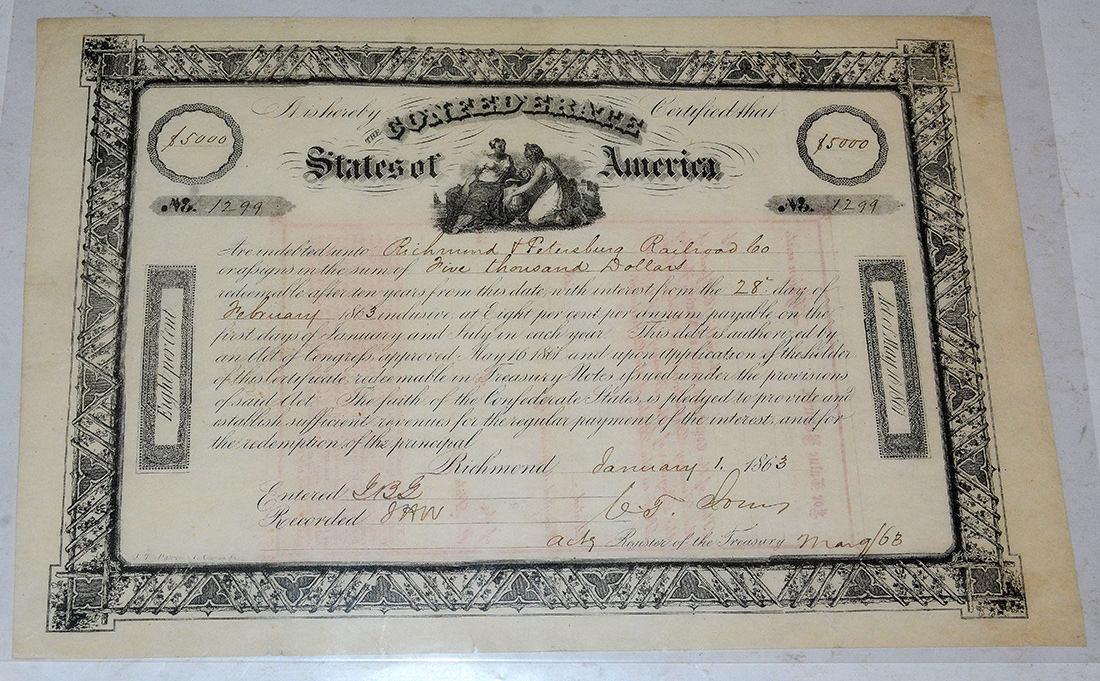 It is hereby THE CONFEDERATE Certified that
$5000 States of America, $5000
No. 1299 No. 1299
Are indebted unto Richmond & Petersburg Railroad Co
or assigns in the sum of Five thousand Dollars
redeemable after ten years from this date, with interest from the 28 day of
February 1863 inclusive at Eight per cent per annum payable on the
first days of January and July in each year. This debt is authorized by
an Act of Congress approved May 16 1861 and upon application of the holder
of this Certificate, redeemable in Treasury Notes issued under the provisions
of said Act. The faith of the Confederate States is pledged to provide and
establish sufficient revenues for the regular payment of the interest, and for
the redemption of the principal
Eight per cent
Act May 16 1861
Richmond January 1, 1863
Entered
Recorded
C. T.
actg Register of the Treasury Mar 9/63